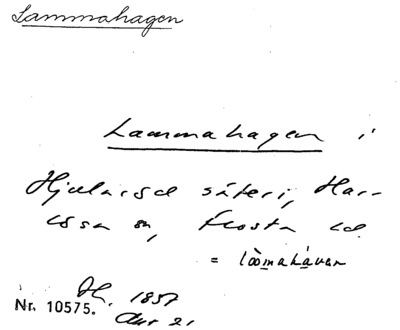 Lammahagen
Lammahagen i
Hjularöd säteri, Har-
lösa sn, Frosta hd.
= lòomahávan
Nr. 10575. 1857